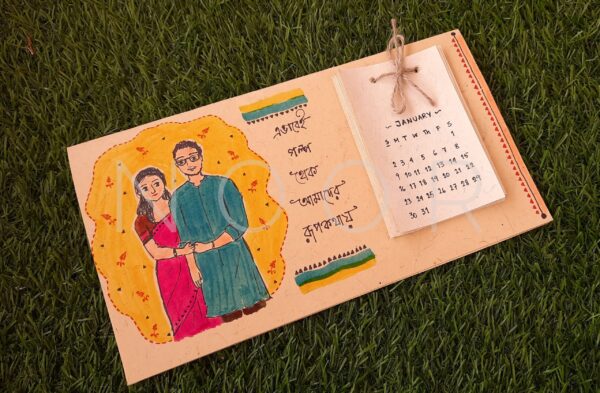 এভাবেই
গল্প
হোক
আমাদের
রূপকথায়
~ JANUARY ~
S M T W Th F S
1
2 3 4 5 6 7 8
9 10 11 12 13 14 15
16 17 18 19 20 21 22
23 24 25 26 27 28 29
30 31
NOOR